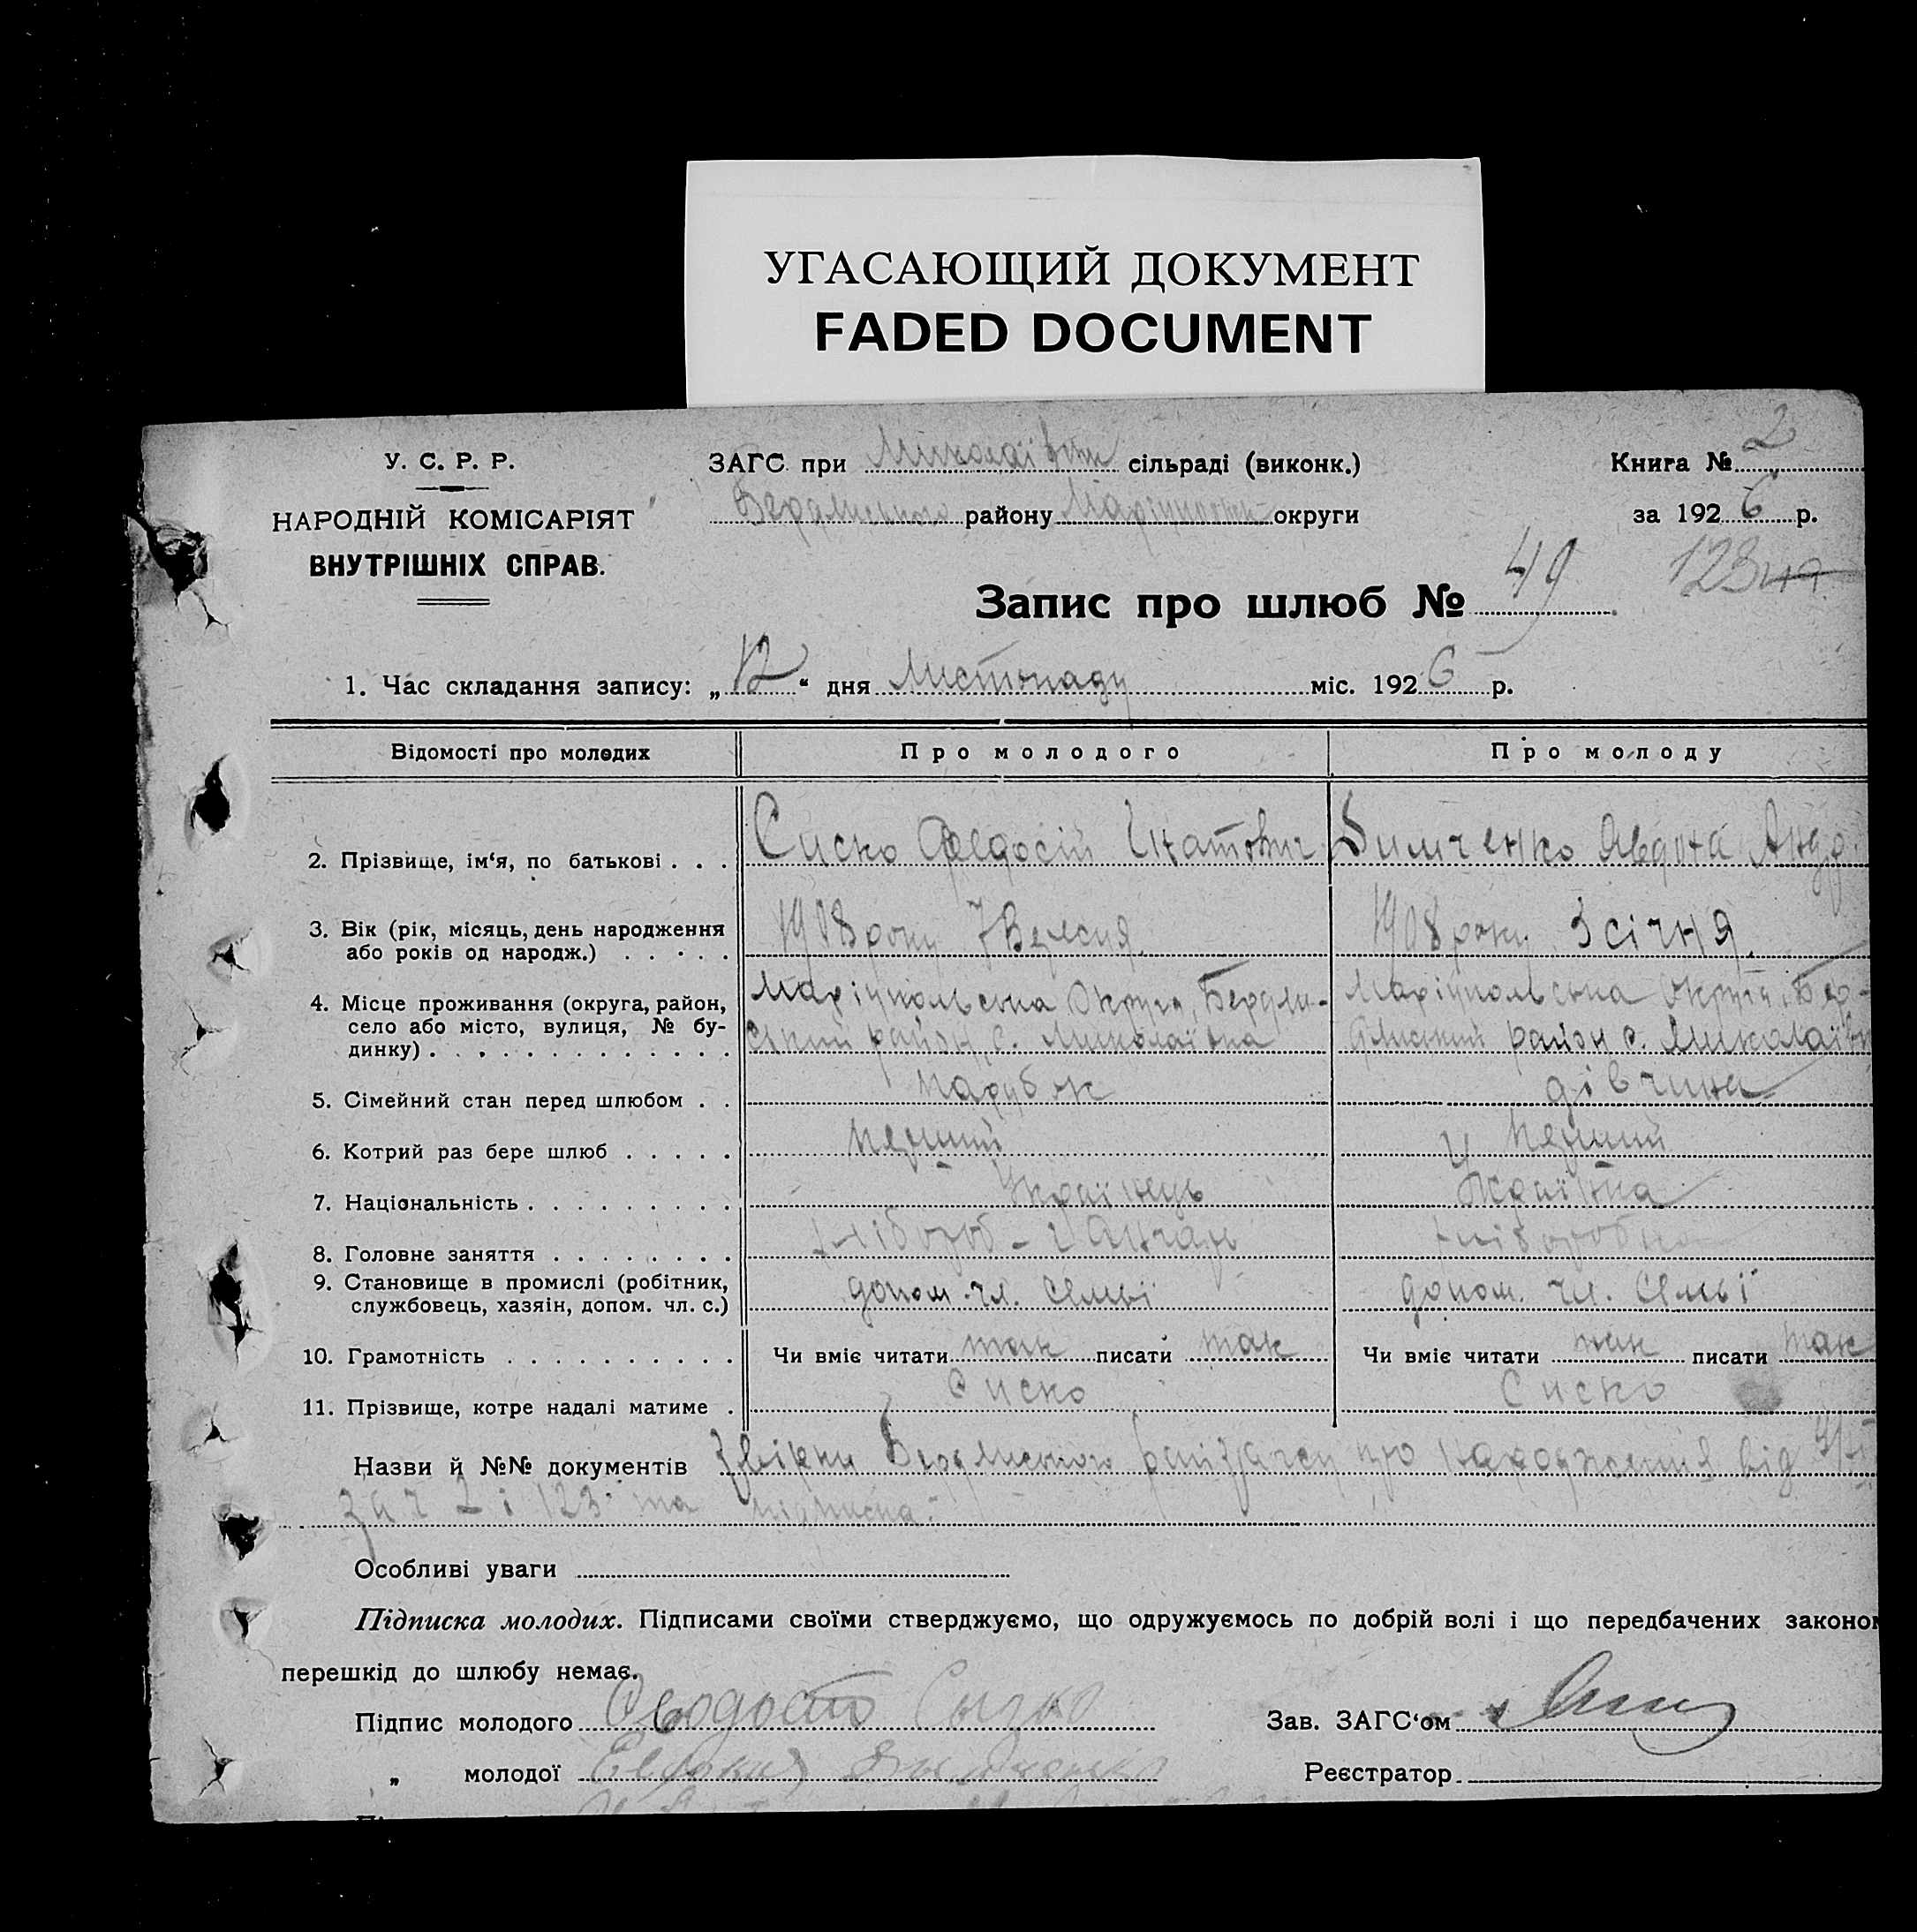 УГАСАЮЩИЙ ДОКУМЕНТ
FADED DOCUMENT
У. С. Р. Р.
НАРОДНІЙ КОМІСАРІЯТ
ВНУТРІШНІХ СПРАВ.
ЗАГС при сільраді (виконк.)
району округи
Книга № 2
за 1926 р.
Запис про шлюб № 49
123
1. Час складання запису: „12“ дня Листопаду міс. 1926 р.
Відомості про молодих Про молодого Про молоду
2. Прізвище, ім‘я, по батькові . . . Сиско Федосій Гнатович Димченко Явдоха Андр.
3. Вік (рік, місяць, день народження 1908 року 7 Вересня 1908 року 3 січня.
або років од народж.) . . . . .
4. Місце проживання (округа, район, Маріупольська Округа, Бердян- Маріупольська округа, Бер-
село або місто, вулиця, № бу- ський район, с. Миколаївка район с. Миколаївк
динку) . . . . . . . . . . . . .
5. Сімейний стан перед шлюбом . . парубок дівчина
6. Котрий раз бере шлюб . . . . . перший перший
7. Національність . . . . . . . . . Українець Українка
8. Головне заняття . . . . . . . . хлібороб хліборобка
9. Становище в промислі (робітник, допом. чл. семьї допом. чл. семьї
службовець, хазяін, допом. чл. с.)
10. Грамотність . . . . . . . . . . Чи вміє читати так писати так Чи вміє читати так писати так
11. Прізвище, котре надалі матиме . Сиско Сиско
Назви й №№ документів про народження від
за ч 2 і 123 та підписка.
Особливі уваги
Підписка молодих. Підписами своїми стверджуємо, що одружуємось по добрій волі і що передбачених законом
перешкід до шлюбу немає.
Підпис молодого Сиско Зав. ЗАГС‘ом
„ молодої Реєстратор